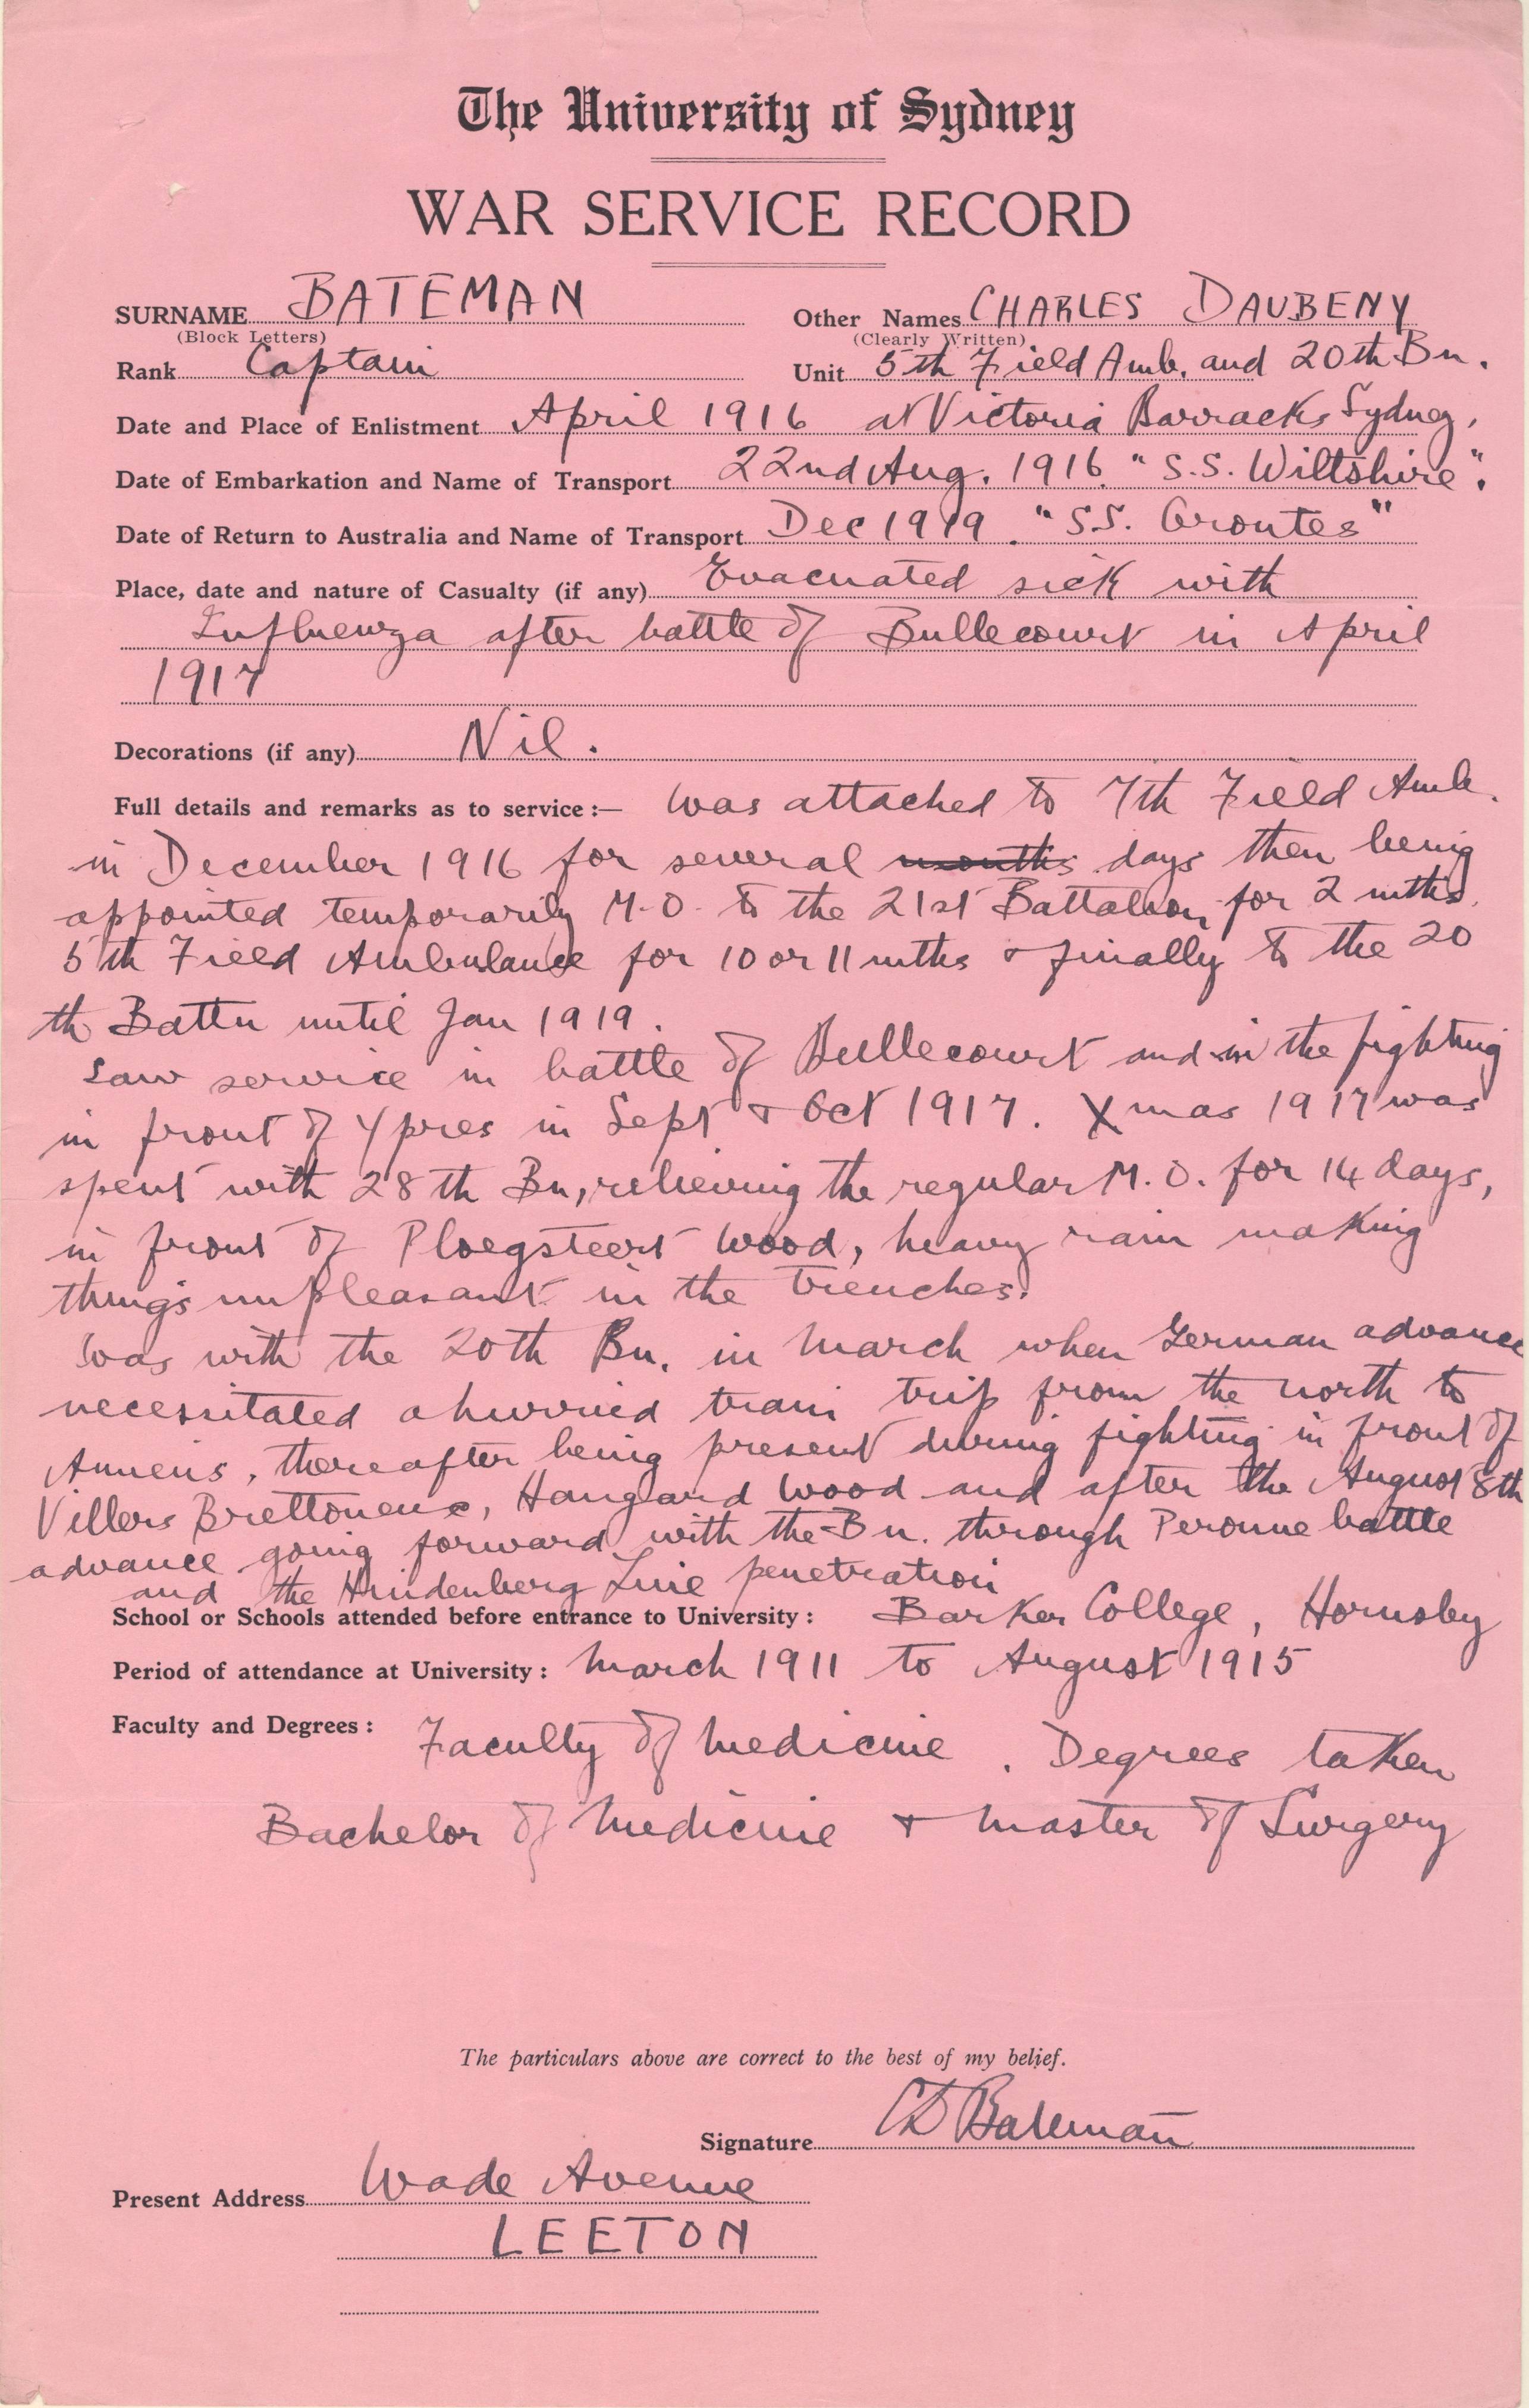 The University of Sydney
WAR SERVICE RECORD
SURNAME BATEMAN Other Names CHARLES DAUBENY
(Block Letters) (Clearly Written)
Rank Captain Unit 5th Field Amb. and 20th Bn.
Date and Place of Enlistment April 1916 at Victoria Barracks Sydney,
Date of Embarkation and Name of Transport 22nd Aug. 1916 "S.S. Wiltshire".
Date of Return to Australia and Name of Transport Dec 1919. "S.S. Orontes"
Place, date and nature of Casualty (if any) Evacuated sick with
Influenza after battle of Bullecourt in April
1917
Decorations (if any) Nil.
Full details and remarks as to service:— Was attached to 7th Field Amb.
in December 1916 for several months days then being
appointed temporarily M.O. to the 21st Battalion, for 2 mths.
5th Field Ambulance for 10 or 11 mths & finally to the 20
th Battn until Jan 1919.
Saw service in battle of Bullecourt and in the fighting
in front of Ypres in Sept & Oct 1917. Xmas 1917 was
spent with 28th Bn, relieving the regular M.O. for 14 days,
in front of Ploegsteert Wood, heavy rain making
things unpleasant in the trenches.
Was with the 20th Bn. in March when German advance
necessitated a hurried train trip from the north to
Amiens, thereafter being present during fighting in front of
Villers Brettoneux, Hangard Wood and after the August 8th
advance going forward with the Bn. through Peronne battle
and the Hindenberg Line penetration
School or Schools attended before entrance to University: Barker College, Hornsby
Period of attendance at University: March 1911 to August 1915
Faculty and Degrees: Faculty of Medicine. Degrees taken
Bachelor of Medicine & Master of Surgery
The particulars above are correct to the best of my belief.
Signature CD Bateman
Present Address Wade Avenue
LEETON